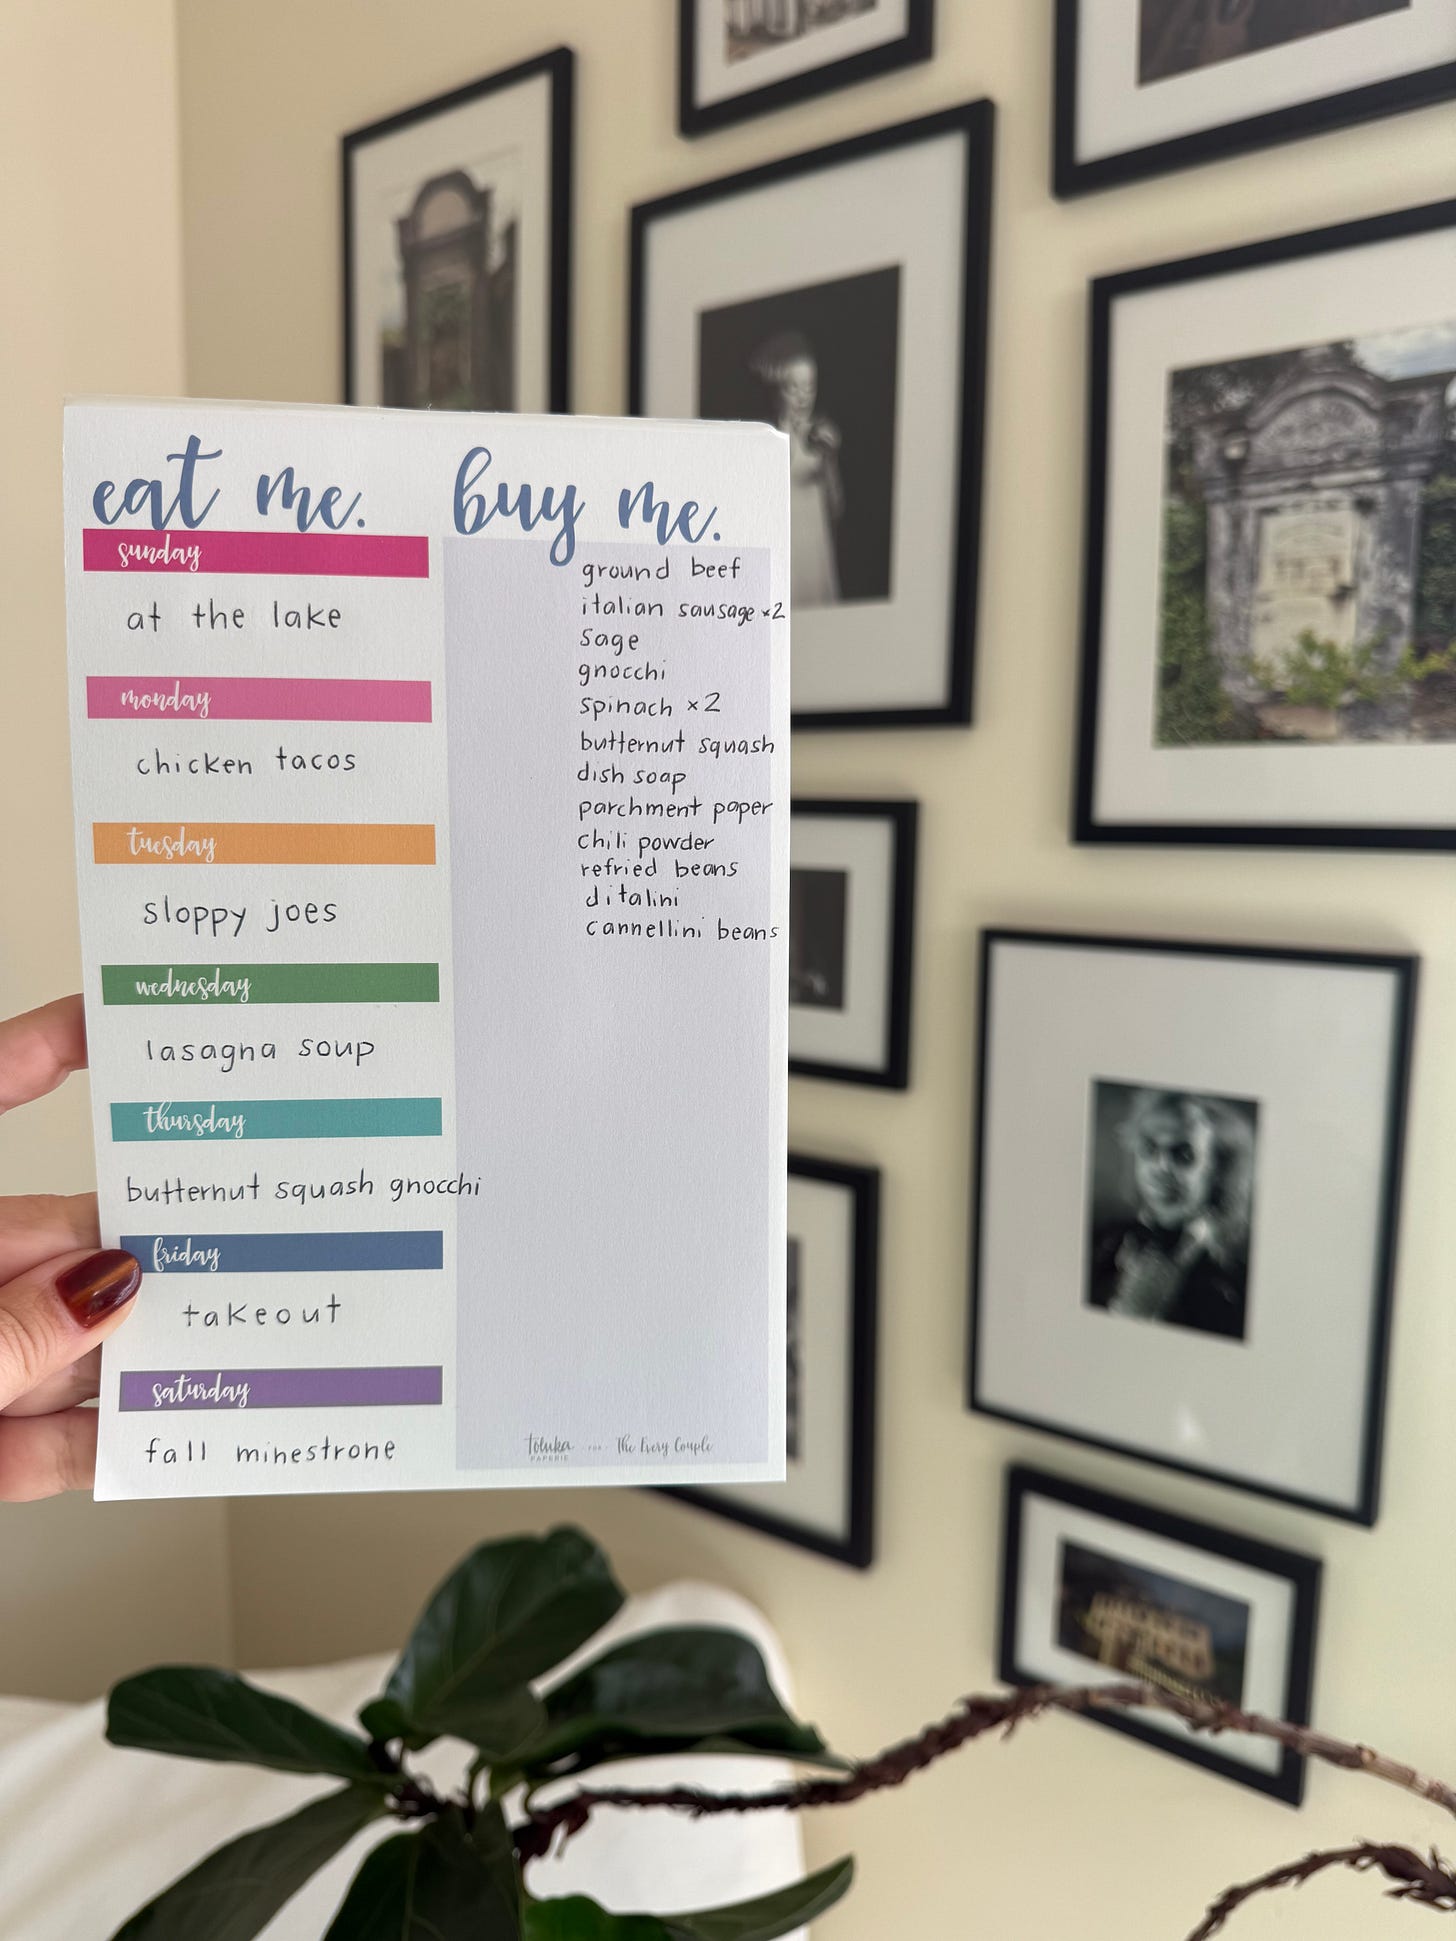 eat me.
sunday
at the lake
monday
chicken tacos
tuesday
sloppy joes
wednesday
lasagna soup
thursday
butternut squash gnocchi
friday
takeout
saturday
fall minestrone
buy me.
ground beef
italian sausage x2
sage
gnocchi
spinach x2
butternut squash
dish soap
parchment paper
chili powder
refried beans
ditalini
cannellini beans
toluka PAPERIE FOR The Every Couple